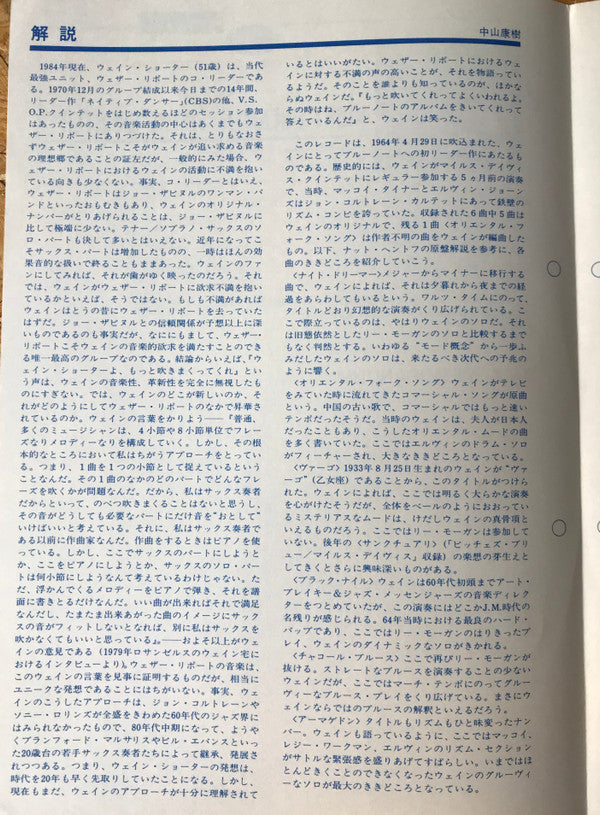 解説
中山康樹
　1984年現在、ウェイン・ショーター(51歳)は、当代
最強ユニット、ウェザー・リポートのコ・リーダーであ
る。1970年12月のグループ結成以来今日までの14年間、
リーダー作『ネイティブ・ダンサー』(CBS)の他、V.S.
O.P.クインテットをはじめ数えるほどのセッション参加
はあったものの、その音楽活動の中心はあくまでもウェ
ザー・リポートにありつづけた。それは、とりもなおさ
ずウェザー・リポートこそがウェインが追い求める音楽
の理想郷であることの証左だが、一般的にみた場合、ウ
ェザー・リポートにおけるウェインの活動に不満を抱い
ている向きも少なくない。事実、コ・リーダーとはいえ、
ウェザー・リポートはジョー・ザビヌルのワンマン・バ
ンドといったおもむきもあり、ウェインのオリジナル・
ナンバーがとりあげられることは、ジョー・ザビヌルに
比して極端に少ない。テナー／ソプラノ・サックスのソ
ロ・パートも決して多いとはいえない。近年になってこ
そサックス・パートは増加したものの、一時はほんの効
果音的な扱いで終ることもままあった。ウェインのファ
ンにしてみれば、それが歯がゆく映ったのだろう。それ
では、ウェインがウェザー・リポートに欲求不満を抱い
ているかといえば、そうではない。もしも不満があれば
ウェインはとうの昔にウェザー・リポートを去っていた
はずだ。ジョー・ザビヌルとの信頼関係が予想以上に深
いものであるのも事実だが、なににもまして、ウェザー・
リポートこそウェインの音楽的欲求を満たすことのでき
る唯一最高のグループなのである。結論からいえば、『ウ
ェイン・ショーターよ、もっと吹きまくってくれ』とい
う声は、ウェインの音楽性、革新性を完全に無視したも
のにすぎない。では、ウェインのどこが新しいのか、そ
れがどのようにしてウェザー・リポートのなかで昇華さ
れているのか。ウェインの言葉をかりよう――『普通、
多くのミュージシャンは、4小節や8小節単位でフレー
ズなりメロディーなりを構成していく。しかし、その根
本的なところにおいて私はちがうアプローチをとってい
る。つまり、1曲を1つの小節として捉えているという
ことなんだ。その1曲のなかのどのパートでどんなフレ
ーズを吹くかが問題なんだ。だから、私はサックス奏者
だからといって、のべつ吹きまくることはないと思うし、
その音がどうしても必要なパートにだけ音を“おとして”
いけばいいと考えている。それに、私はサックス奏者で
ある以前に作曲家なんだ。作曲をするときはピアノを使
っている。しかし、ここでサックスのパートにしようと
か、ここをピアノにしようとか、サックスのソロ・パー
トは何小節にしようなんて考えているわけじゃない。た
だ、浮かんでくるメロディーをピアノで弾き、それを譜
面に書きとるだけなんだ。いい曲が出来ればそれで満足
なんだし、たまたま出来あがった曲のイメージにサック
スの音がフィットしないとなれば、別に私はサックスを
吹かなくてもいいと思っている』。――およそ以上がウェ
インの意見である(1979年ロサンゼルスのウェイン宅に
おけるインタビューより)。ウェザー・リポートの音楽は、
このウェインの言葉を見事に証明するものだが、相当に
ユニークな発想であることにはちがいない。事実、ウェ
インのこうしたアプローチは、ジョン・コルトレーンや
ソニー・ロリンズが全盛をきわめた60年代のジャズ界に
はみられなかったもので、80年代中期になって、ようや
くブランフォード・マルサリスやビル・エバンスといっ
た20歳台の若手サックス奏者たちによって継承、発展さ
れつつある。つまり、ウェイン・ショーターの発想は、
時代を20年も早く先取りしていたことになる。しかし、
現在もまだ、ウェインのアプローチが十分に理解されて
いるとはいいがたい。ウェザー・リポートにおけるウェ
インに対する不満の声の高いことが、それを物語ってい
るようだ。そのことを誰よりも知っているのが、ほかな
らぬウェインだ。『もっと吹いてくれってよくいわれるよ。
その時はね、ブルーノートのアルバムをきいてくれって
答えているんだ』と、ウェインは笑った。
　このレコードは、1964年4月29日に吹込まれた、ウェ
インにとってブルーノートへの初リーダー作にあたるも
のである。歴史的には、ウェインがマイルス・デイヴィ
ス・クインテットにレギュラー参加する5ヵ月前の演奏
で、当時、マッコイ・タイナーとエルヴィン・ジョーン
ズはジョン・コルトレーン・カルテットにあって鉄壁の
リズム・コンビを誇っていた。収録された6曲中5曲は
ウェインのオリジナルで、残る1曲〈オリエンタル・フ
ォーク・ソング〉は作者不明の曲をウェインが編曲した
もの。以下、ナット・ヘントフの原盤解説を参考に、各
曲のききどころを紹介していこう。
〈ナイト・ドリーマー〉メジャーからマイナーに移行する
曲で、ウェインによれば、それは夕暮れから夜までの経
過をあらわしてもいるという。ワルツ・タイムにのって、
タイトルどおり幻想的な演奏がくり広げられている。こ
こで際立っているのは、やはりウェインのソロだ。それ
は旧態依然としたリー・モーガンのソロと比較するまで
もなく判然とする。いわゆる“モード概念”から一歩ふ
みだしたウェインのソロは、来たるべき次代への予兆の
ように響く。
〈オリエンタル・フォーク・ソング〉ウェインがテレビ
をみていた時に流れてきたコマーシャル・ソングが原曲
という。中国の古い歌で、コマーシャルではもっと速い
テンポだったそうだ。当時のウェインは、夫人が日本人
だったこともあり、こうしたオリエンタル・ムードの曲
を多く書いていた。ここではエルヴィンのドラム・ソロ
がフィーチャーされ、大きなききどころとなっている。
〈ヴァーゴ〉1933年8月25日生まれのウェインが“ヴァ
ーゴ”(乙女座)であることから、このタイトルがつけら
れた。ウェインによれば、ここでは明るく大らかな演奏
を心がけたそうだが、全体をベールのようにおおってい
るミステリアスなムードは、けだしウェインの真骨頂と
いえるものだろう。ここではリー・モーガンは参加して
いない。後年の〈サンクチュアリ〉(『ビッチェズ・ブリ
ュー／マイルス・デイヴィス』収録)の楽想の芽生えと
してきくとさらに興味深いものがある。
〈ブラック・ナイル〉ウェインは60年代初頭までアート・
ブレイキー＆ジャズ・メッセンジャーズの音楽ディレ
クターをつとめていたが、この演奏にはどこかJ.M.時代の
名残りが感じられる。64年当時における最良のハード・
バップであり、ここではリー・モーガンのはりきったプ
レイ、ウェインのダイナミックなソロがきかれる。
〈チャコール・ブルース〉ここで再びリー・モーガンが
抜ける。ストレートなブルースを演奏することの少ない
ウェインだが、ここではマーチ・テンポにのってグルー
ヴィーなブルース・プレイをくり広げている。まさにウ
ェインならではのブルースの解釈といえるだろう。
〈アーマゲドン〉タイトルもリズムもひと味変ったナン
バー。ウェインも語っているように、ここではマッコイ、
レジー・ワークマン、エルヴィンのリズム・セクション
がサトルな緊張感を盛りあげてすばらしい。いまではほ
とんどきくことのできなくなったウェインのグルーヴィ
ーなソロが最大のききどころとなっている。